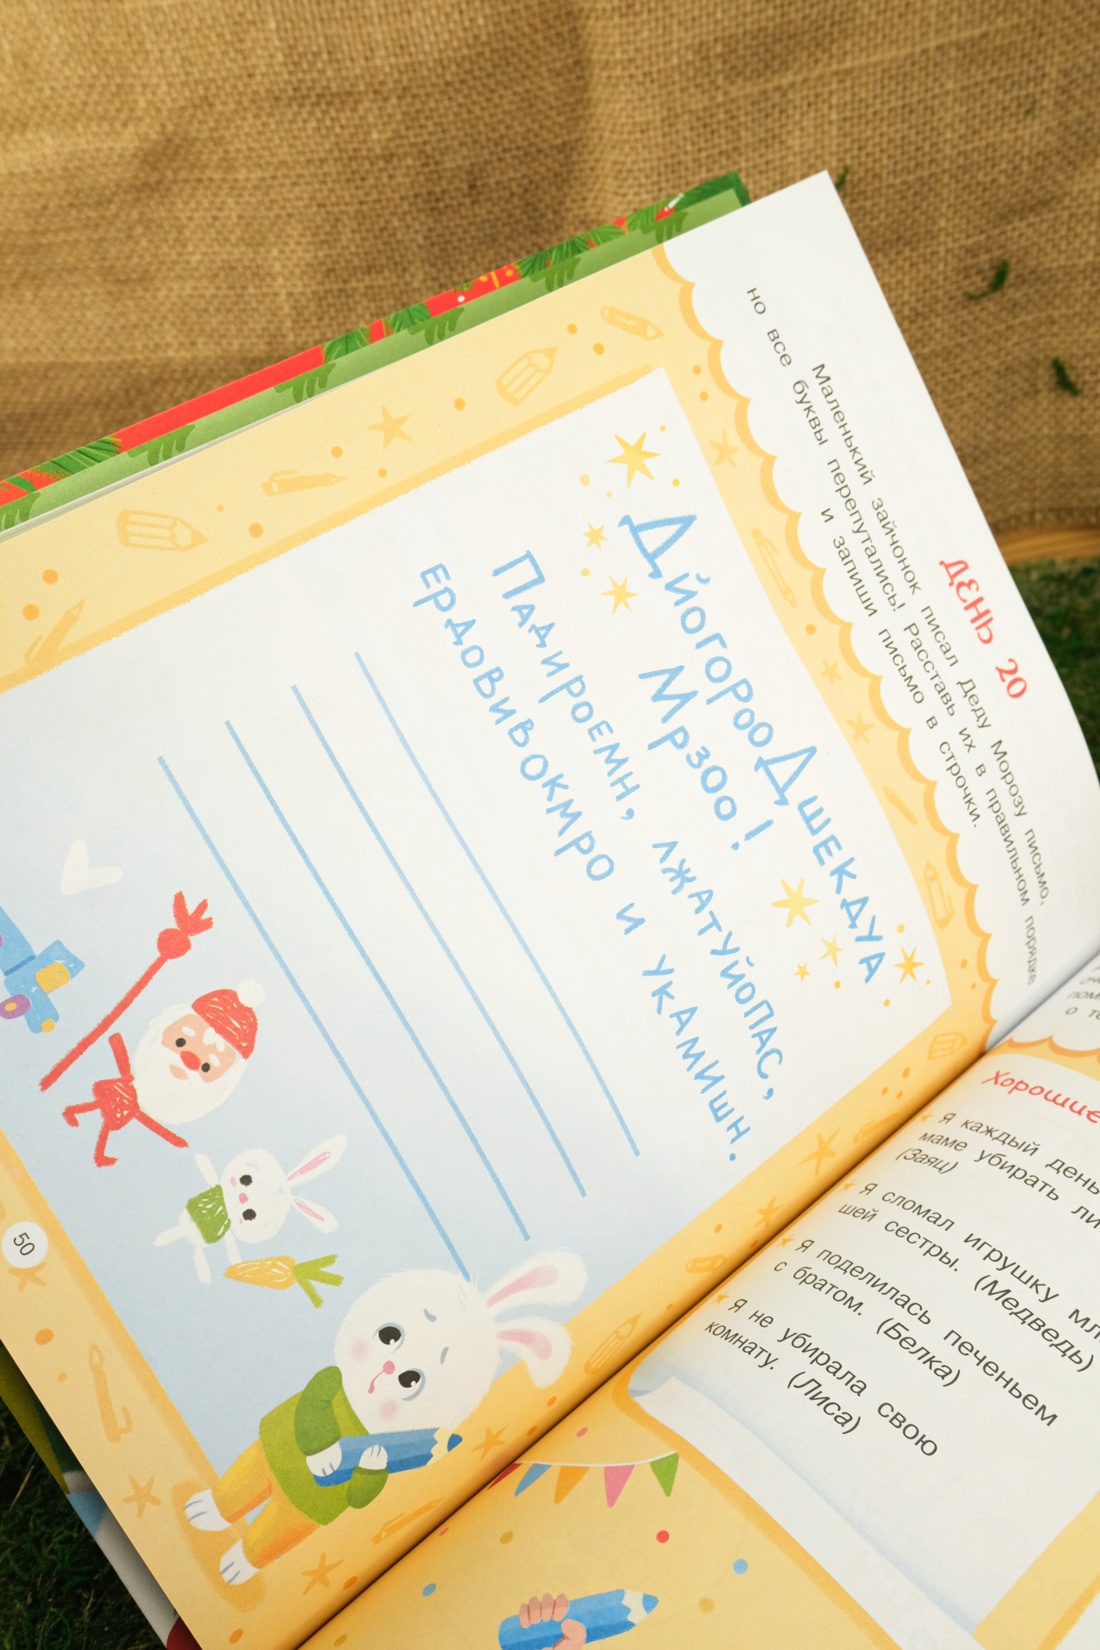 ДЕНЬ 20
Маленький зайчонок писал Деду Морозу письмо,
но все буквы перепутались! Расставь их в правильном порядке
и запиши письмо в строчки.
ДйогорооДшекдуа
Мрзоо!
Падироемн, лжатуйопас,
ердовивокмро и укамишн.
50
о
Хорошие
Я каждый день
маме убирать
(Заяц)
Я сломал игрушку
шей сестры. (Медведь)
Я поделилась печеньем
с братом. (Белка)
Я не убирала свою
комнату. (Лиса)